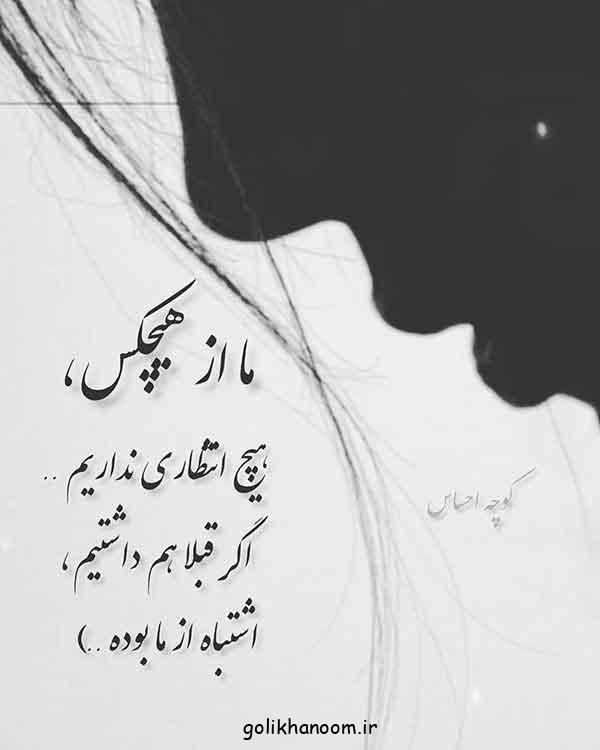 ما از هیچکس،
هیچ انتظاری نداریم ..
اگر قبلا هم داشتیم،
اشتباه از ما بوده ..)
کوچه احساس
golikhanoom.ir